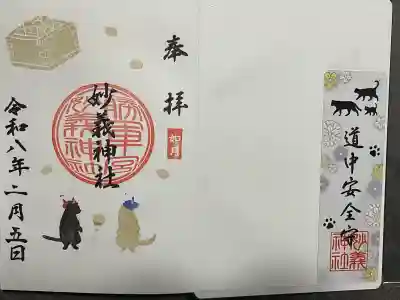 奉拝
如月
妙義神社
令和八年二月五日
道中安全守
妙義
神社